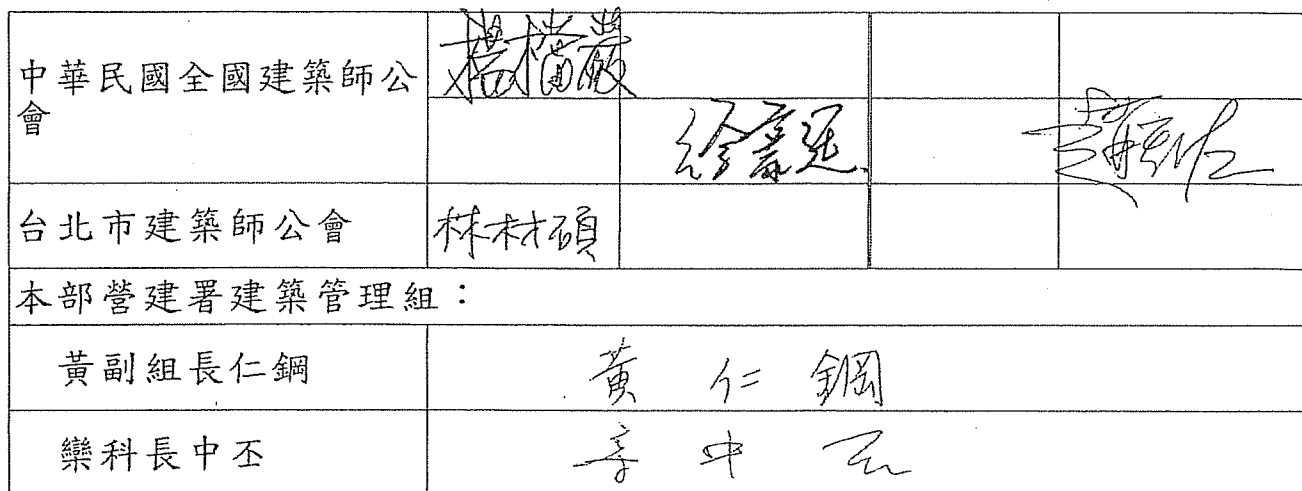 中華民國全國建築師公
會
楊檔巖
台北市建築師公會
林材碩
本部營建署建築管理組：
黃副組長仁鋼
黃仁鋼
欒科長中丕
中丕